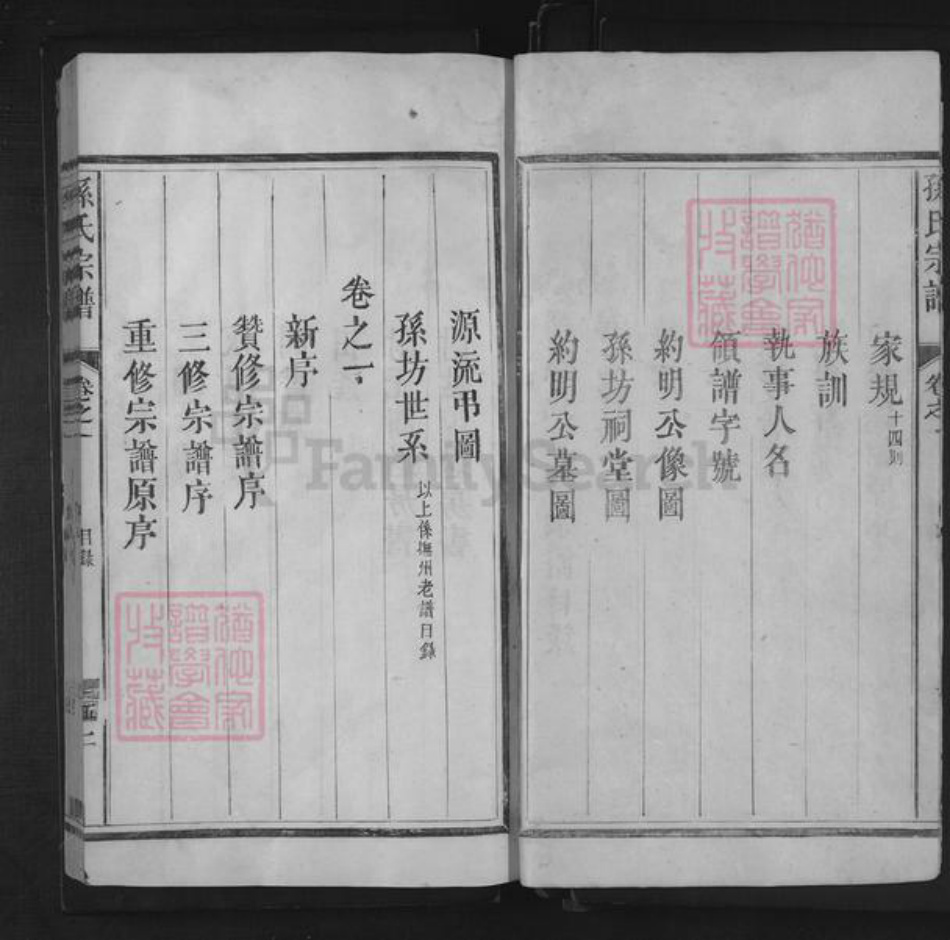 孫氏宗譜
卷之一
家規 十四則
族訓
執事人名
領譜字號
約明公像圖
孫坊祠堂圖
約明公墓圖
源流弔圖
孫坊世系 以上係撫州老譜目錄
卷之一
新序
贊修宗譜序
三修宗譜序
重修宗譜原序
孫氏宗譜
卷之一
目錄
FamilySearch